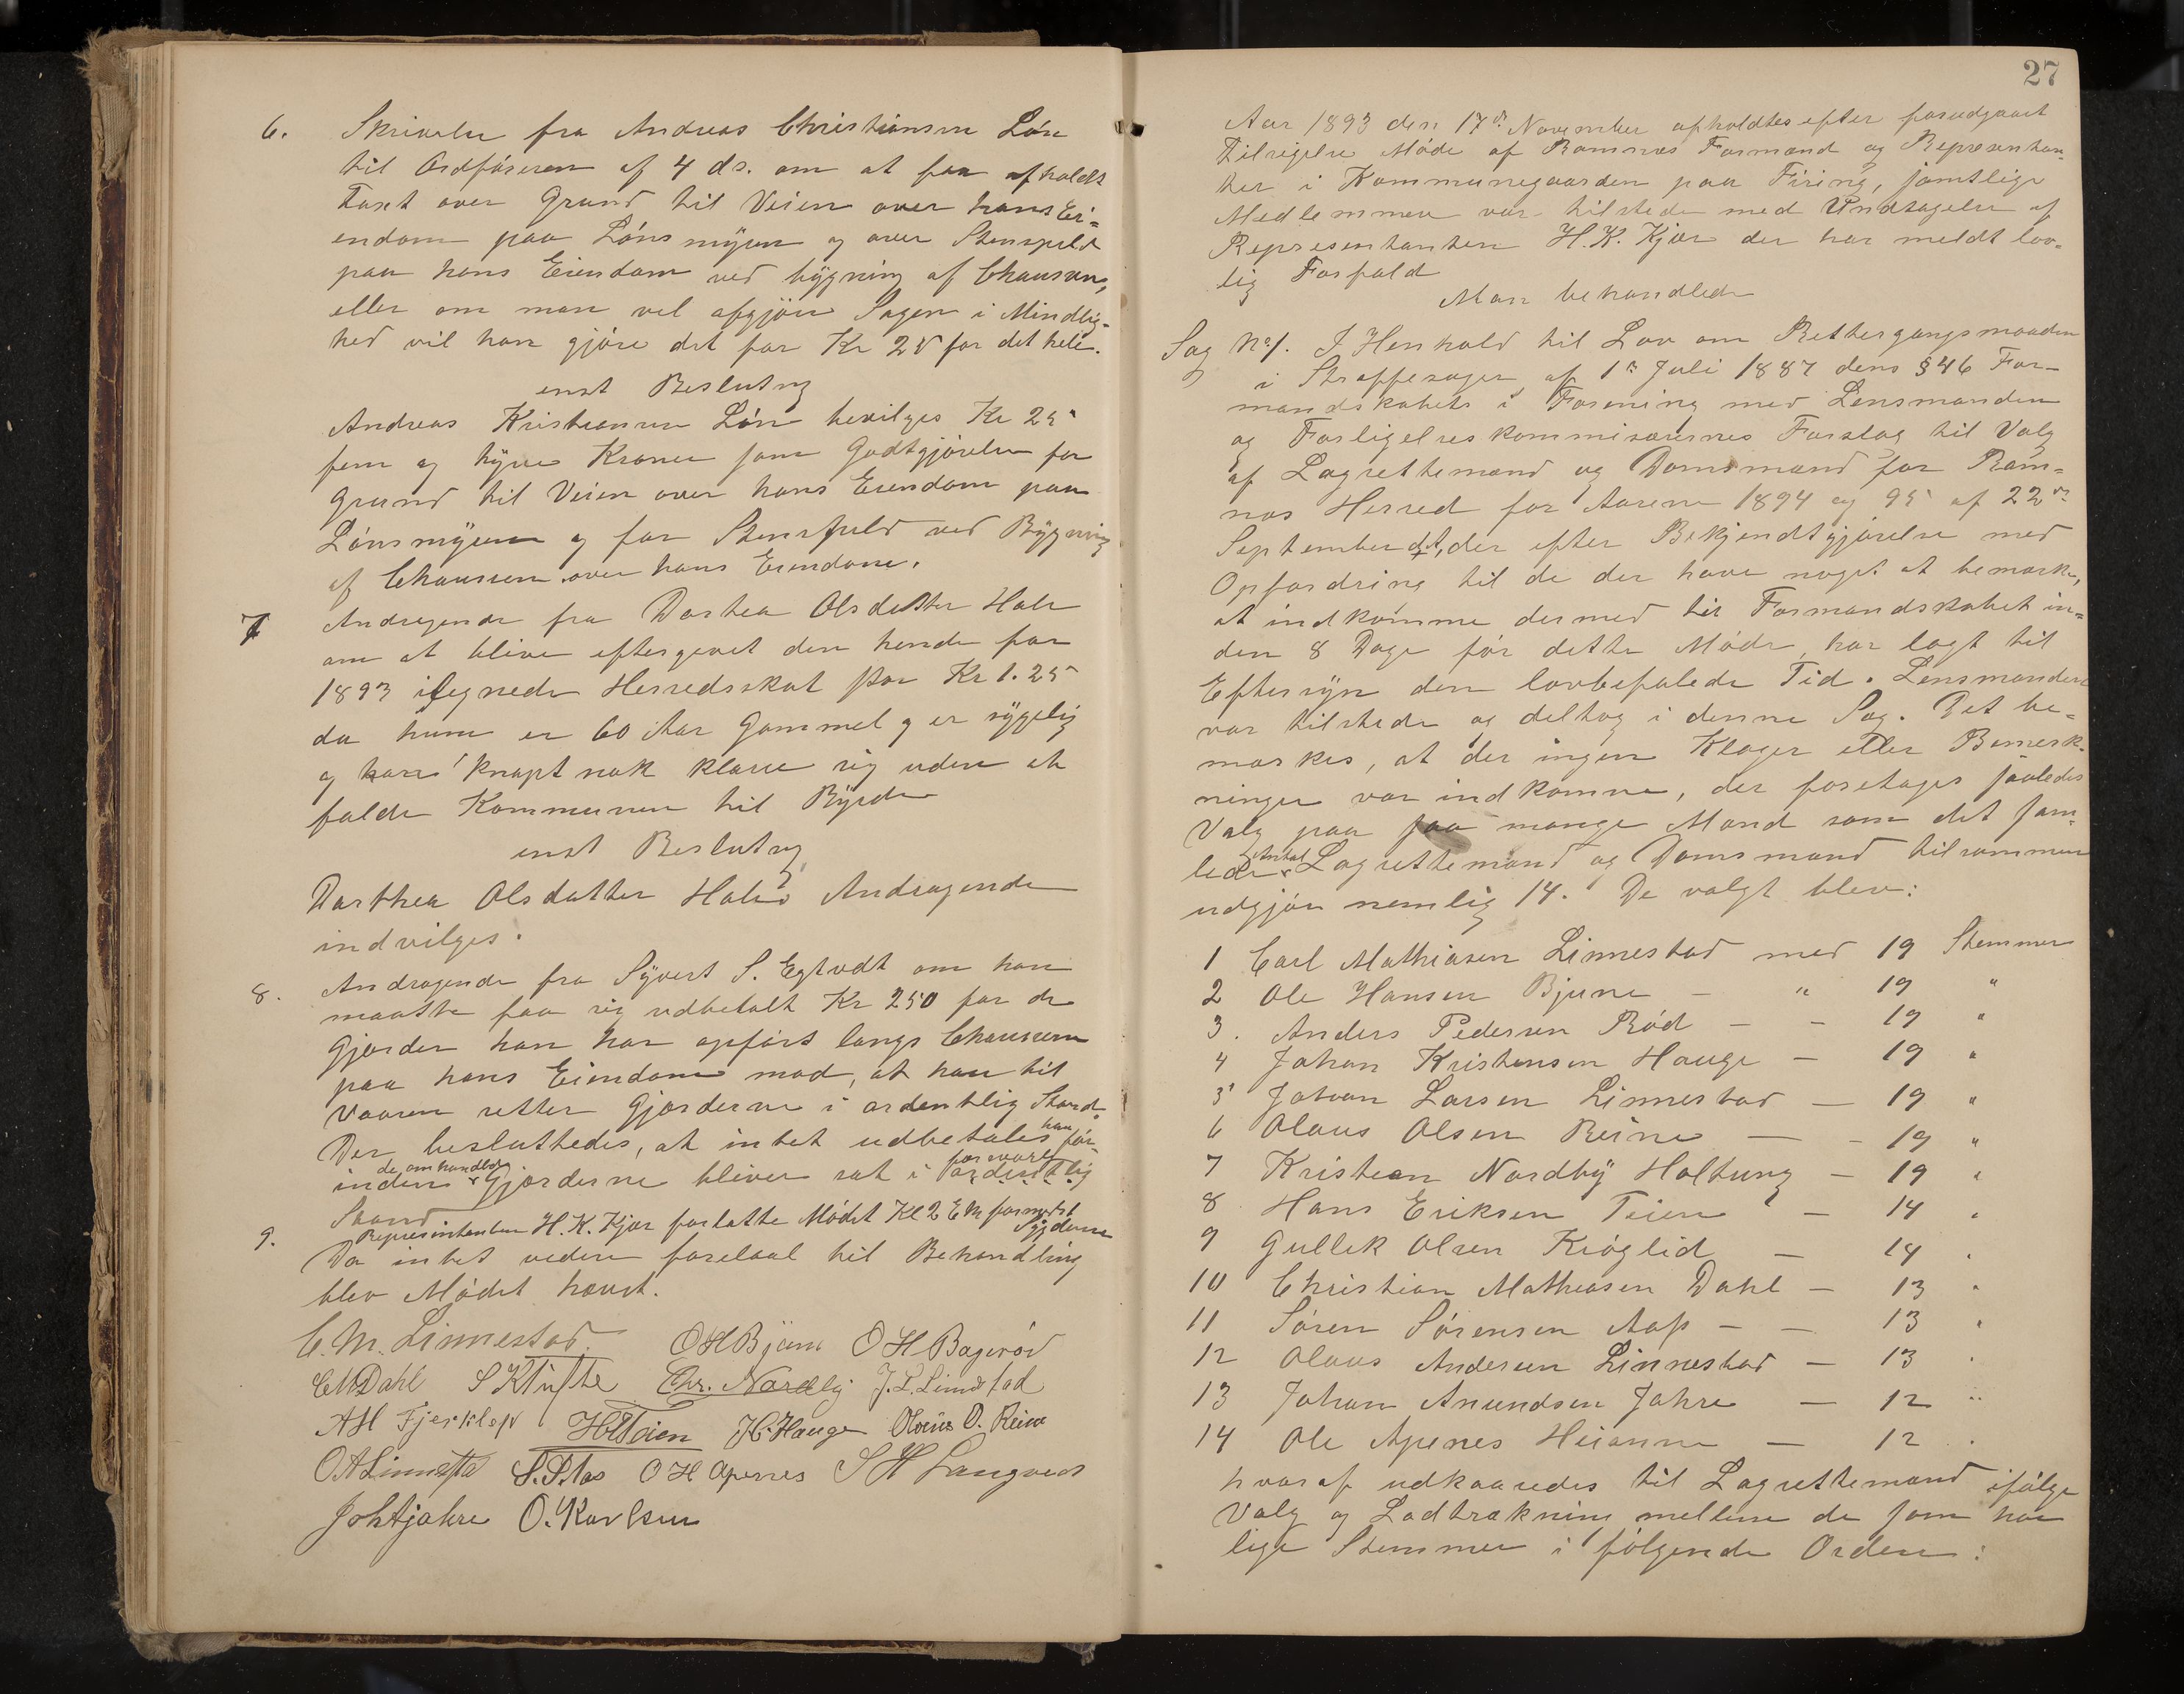 6. Skrivelse fra Andreas Christiansen Lön
til Ordföreren af 4 ds. om at faa afholdt
Taxt over Grund til Veien over hans Ei-
endom paa Lönsmyren og over Stenspild
paa hans Eiendom ved bygning af Chauseen,
eller om man vil afgjöre Sagen i Mindlig-
hed vil han gjöre det for Kr 25 for det hele.
enst Beslutng
Andreas Kristiansen Lön bevilges Kr 25
fem og tyve Kroner som Godtgjörelse for
Grund til Veien over hans Eiendom paa
Lönsmyren og for Stensfuld ved Bygning
af Chauseen over hans Eiendom.
7 Andragende fra Dorthea Olsdatter Hole
om at blive eftergivet den hende for
1893 ilegnede Herredsskat stor Kr 1.25
da hun er 60 Aar Gammel og er sygelig
og kan knapt nok klare sig uden at
falde Kommunen til Byrde
enst Beslutng
Dorthea Olsdatter Holes Andragende
indvilges.
8. Andragende fra Syvert S. Egtvedt om han
maatte faa sig udbetalt Kr 250 for de
Gjærder han har opfört langs Chauseen
paa hans Eiendom mod, at han til
Vaaren setter Gjærderne i ordentlig Stand.
Der besluttedes, at intet udbetales ham för-
inden de omhandlede Gjærderne bliver sat i forsvarlig ordentlig
Stand
Repræsentanten H. K. Kjær forlatte Mödet Kl 2 Em formedelst
Sygdom
9. Da intet videre forelaa til Behandling
blev Mödet hævet.
C. M. Linnestad. O H Bjune O H Bogeröd
C M Dahl S Klufte Chr. Nordby J. L. Linnestad
A H Fjerklep H E Teien J K Hauge Olaus O. Reine
O A Linnestad S. S. Aas O H Apenes S H Langved
Joh A Jahre O. Karlsen
27
Aar 1893 den 17de November afholdtes efter forudgaaet
Tilsigelse Möde af Ramnæs Formænd og Repræsentan-
ter i Kommunegaarden paa Firing, samtlige
Medlemmer var tilstede med Undtagelse af
Representanten H. K. Kjær der har meldt lov-
lig Forfald
Man behandlede
Sag No 1. I Henhold til Lov om Rettergangsmaaden
i Straffesager af 1ste Juli 1887 dens § 46 For-
mandskabets i Forening med Lensmanden
og Forligelseskommisærernes Forslag til Valg
af Lagrettemænd og Domsmænd for Ram-
næs Herred for Aarene 1894 og 95 af 22de
September d.A, der efter Bekjendtgjörelse med
Opfordring til de der have noget at bemærke,
at indkomme dermed til Formandskabet in-
den 8 Dage för dette Möde, har lagt til
Eftersyn den lovbefalede Tid. Lensmanden
var tilstede og deltog i denne Sag. Det be-
mærkes, at der ingen Klager eller Bemerk-
ninger var indkomne, der foretages saaledes
Valg paa saa mange Mænd som det sam-
lede Antal Lagrettemænd og Domsmænd tilsammen
udgjör nemlig 14. De valgt blev:
1 Carl Mathiasen Linnestad med 19 Stemmer
2 Ole Hansen Bjune - " 19 "
3. Anders Pedersen Röd - - 19 "
4 Johan Kristensen Hauge - 19 "
5 Johan Larsen Linnestad - 19 "
6 Olaus Olsen Reine - - 19 "
7 Kristian Nordby Holtung - 19 "
8 Hans Eriksen Teien - 14 "
9 Gullik Olsen Kröglid - 14 "
10 Christian Mathiasen Dahl - 13 "
11 Sören Sörensen Aas - - 13 "
12 Olaus Andersen Linnestad - 13 "
13 Johan Anundsen Jahre - 12 "
14 Ole Apenes Heianne - 12 "
hvoraf udkaaredes til Lagrettemænd ifölge
Valg og Lodtrækning mellem de som har
lige Stemmer i fölgende Orden: